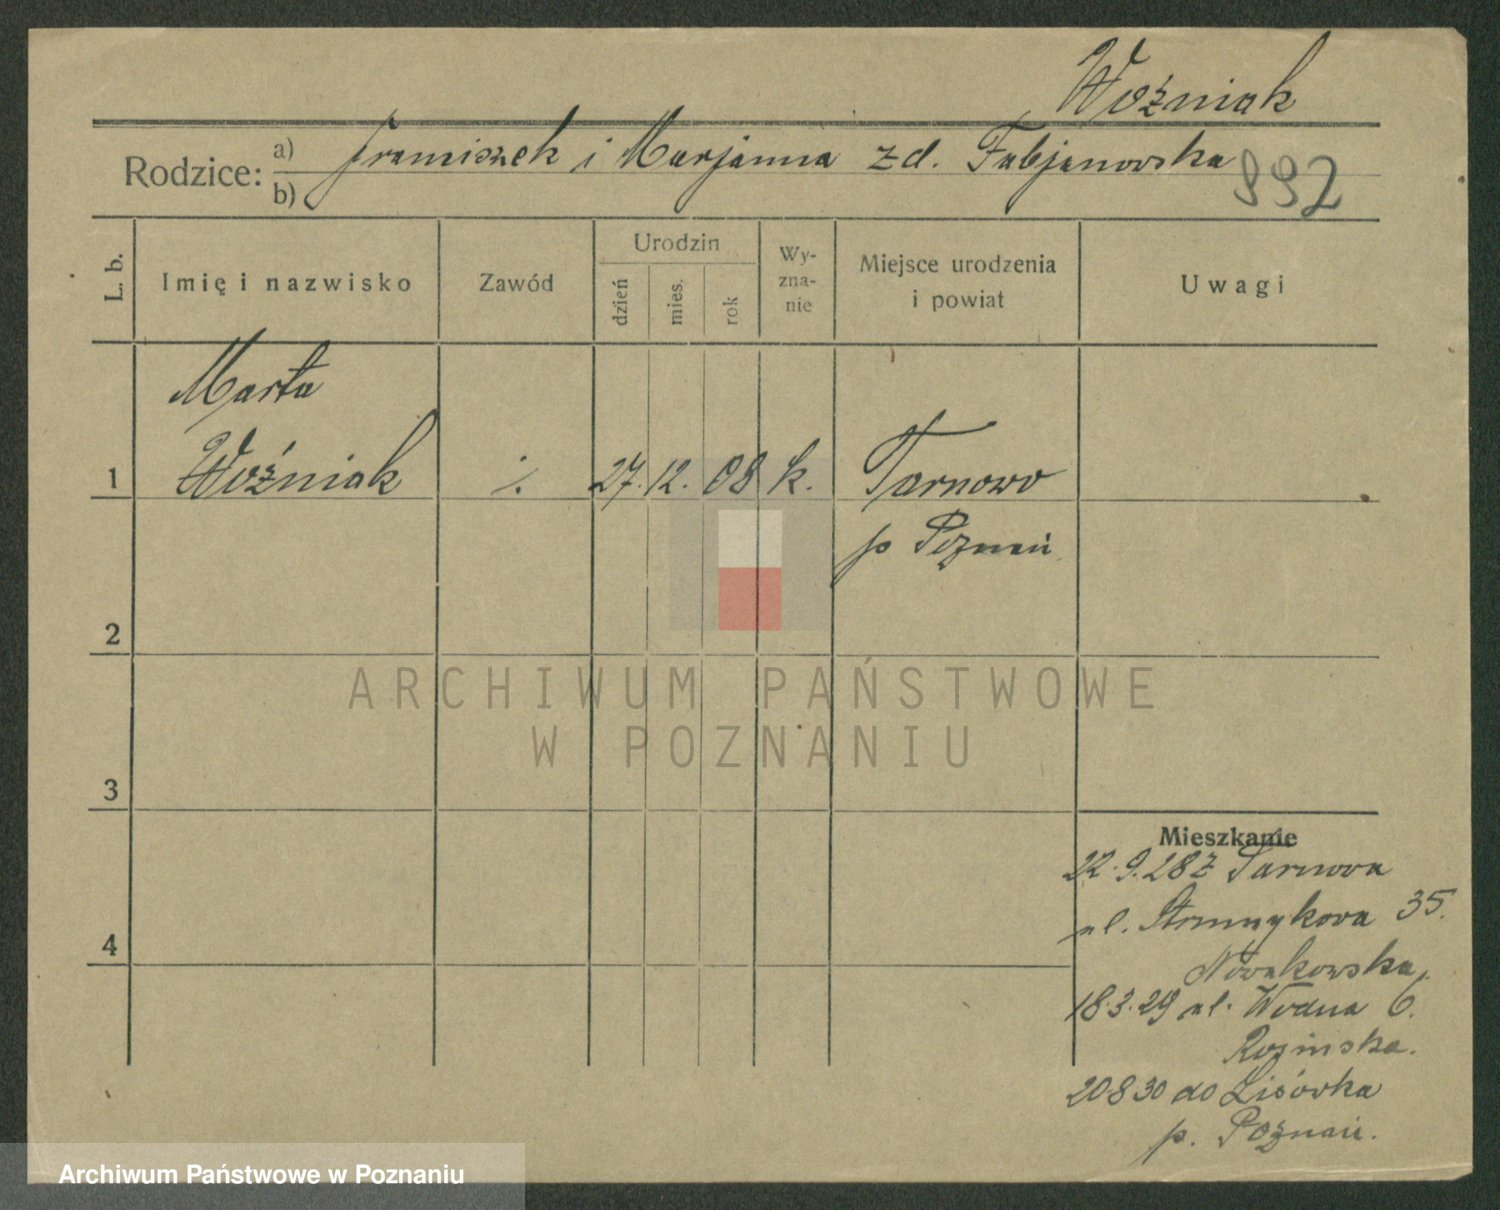 Woźniak
Rodzice: a) Franciszek i Marjanna zd. Fabjanowska
b)
892
L. b.
Imię i nazwisko
Zawód
Urodzin
dzień
mies.
rok
Wy-
zna-
nie
Miejsce urodzenia
i powiat
Uwagi
Marta
1 Woźniak ·/. 27. 12. 08 k. Tarnowo
p Poznań
2
3
4
ARCHIWUM PAŃSTWOWE
W POZNANIU
Mieszkanie
22.9.28 z Tarnova
ul. 35.
Nowakowska,
18.3.29 ul. Wodna 6.
Rosinska.
20 8 30 do Lisówka
p. Poznań.
Archiwum Państwowe w Poznaniu